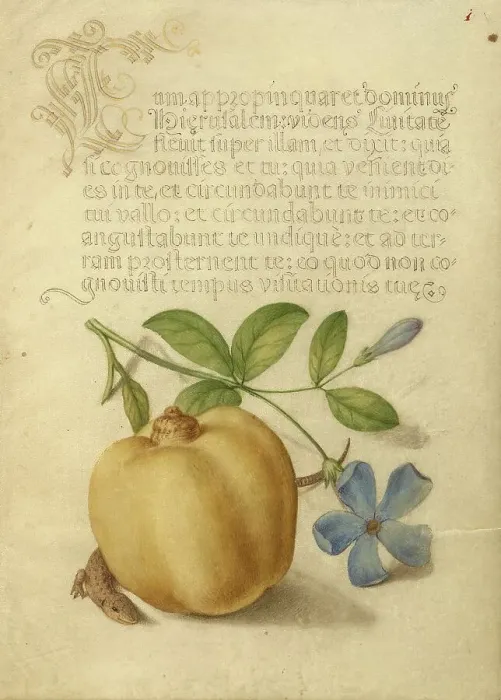 1
Cum appropinquaret dominus
Hierusalem: videns Civitatē
flevit super illam, et dixit: quia
si cognovisses et tu: quia venient di-
es in te, et circundabunt te inimici
tui vallo: et circundabunt te: et co-
angustabunt te undiquè: et ad ter-
ram prosternent te: eo quod non co-
gnovisti tempus visitationis tuę